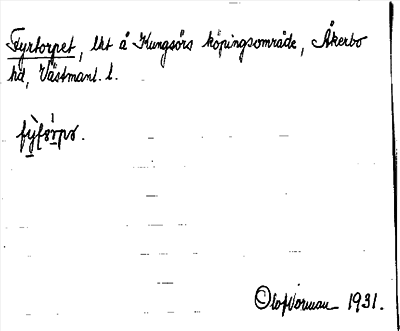 Fyrtorpet, lht å Kungsörs köpingsområde, Åkerbo
hd, Västmanl. l.
Olof Norman 1931.